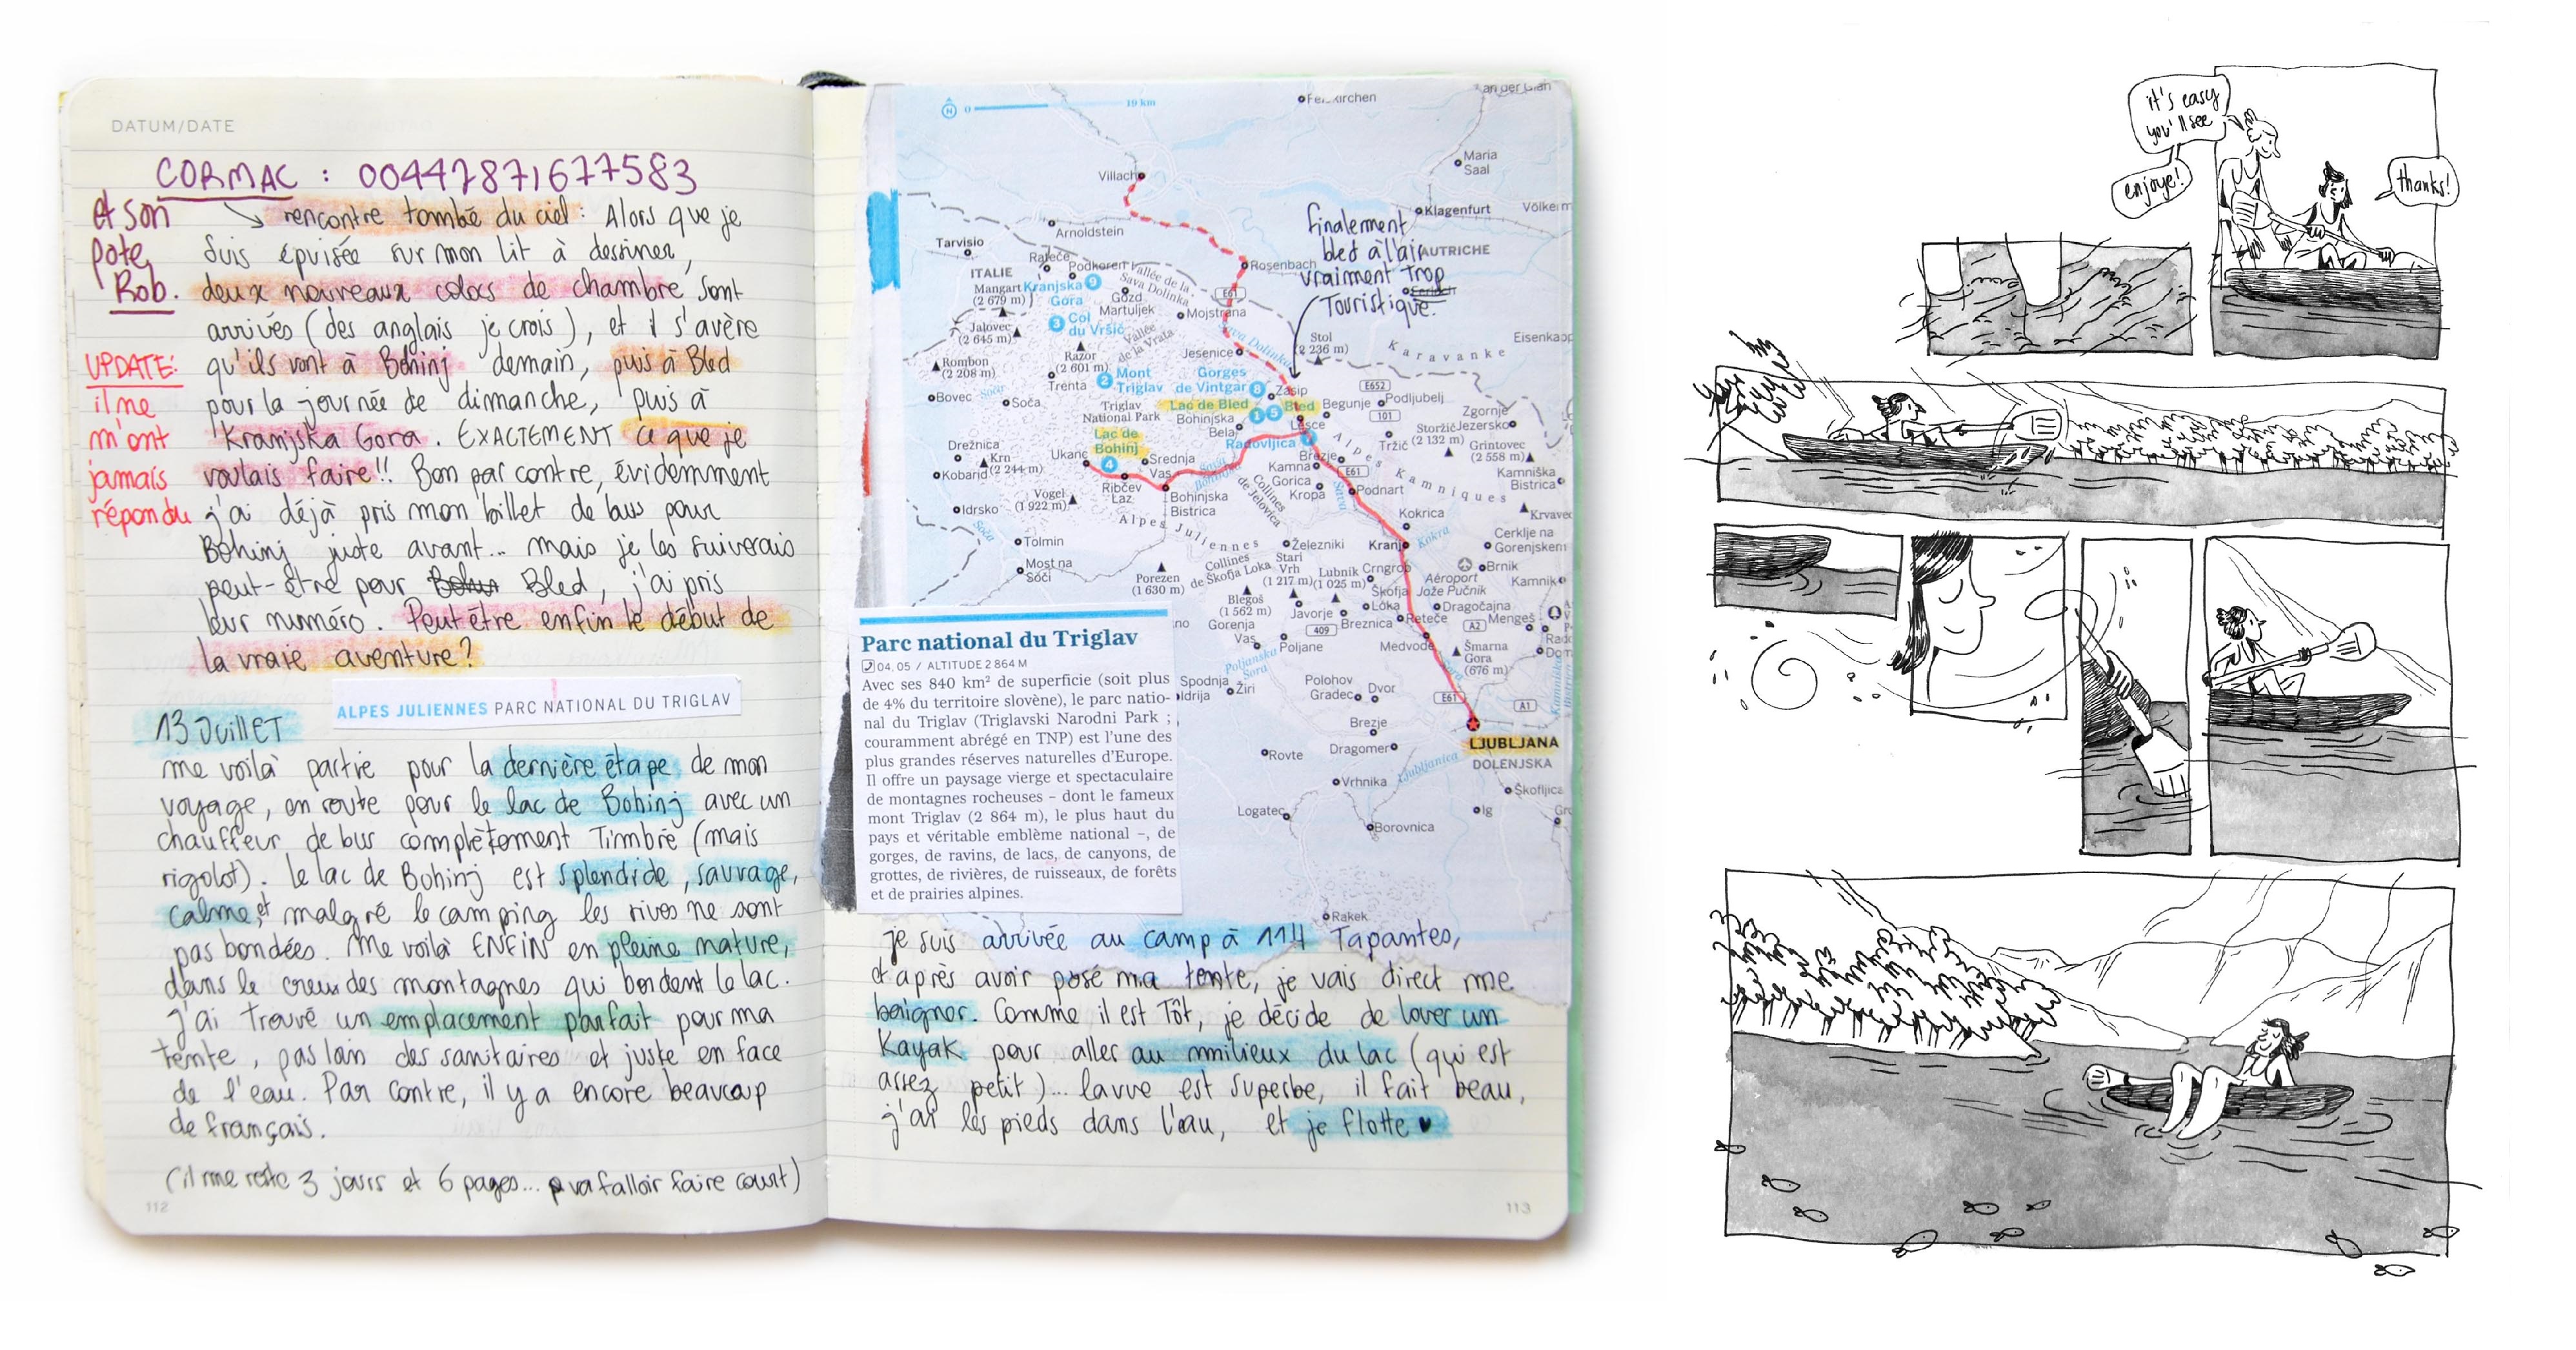 DATUM/DATE
CORMAC : 00447871677583
et son
pote
Rob.
→ rencontre tombé du ciel : Alors que je
suis épuisée sur mon lit à dessiner,
deux nouveaux colocs de chambre sont
arrivés (des anglais je crois), et il s'avère
qu'ils vont à Bohinj demain, puis à Bled
pour la journée de dimanche, puis à
Kranjska Gora. EXACTEMENT ce que je
voulais faire!! Bon par contre, évidemment
j'ai déjà pris mon billet de bus pour
Bohinj juste avant... mais je les suiverais
peut-être pour Bled, j'ai pris
leur numéro. Peut être enfin le début de
la vraie aventure?
UPDATE:
il me
m'ont
jamais
répondu
ALPES JULIENNES PARC NATIONAL DU TRIGLAV
13 Juillet
me voilà partie pour la dernière étape de mon
voyage, en route pour le lac de Bohinj avec un
chauffeur de bus complètement Timbré (mais
rigolot). Le lac de Bohinj est splendide, sauvage,
calme, et malgré le camping les rives ne sont
pas bondées. Me voilà ENFIN en pleine nature,
dans le creux des montagnes qui bordent le lac.
J'ai trouvé un emplacement parfait pour ma
tente, pas loin des sanitaires et juste en face
de l'eau. Par contre, il y a encore beaucoup
de français.
(il me reste 3 jours et 6 pages... va falloir faire court)
112
0 19 km
Villach
Maria
Saal
Klagenfurt
Arnoldstein
Tarvisio
Rateče
Podkoren
Vallée de la
Sava Dolinka
ITALIE
AUTRICHE
Rosenbach
Mangart
(2 679 m)
Kranjska
Gora
9
Gozd
Martuljek
E61
finalement
bled à l'air
vraiment Trop
Touristique.
Jalovec
(2 645 m)
3 Col
du Vršič
Vallée
de la Vrata
Mojstrana
Sava Dolinka
Stol
(2 236 m)
Karavanke
Rombon
(2 208 m)
Razor
(2 601 m)
Jesenice
Trenta
2 Mont
Triglav
Gorges
de Vintgar 8
Zasip
E652
Bovec
Soča
Soča
Triglav
National Park
Lac de Bled 1 5 Bled
Begunje
Podljubelj
101
Bohinjska
Bela
Lesce
Zgornje
Jezersko
Storžič
(2 132 m)
Drežnica
Lac de
Bohinj
4
Radovljica 7
Tržič
Grintovec
(2 558 m)
Krn
(2 244 m)
Ukanc
Srednja
Vas
Brezje
Kobarid
Kamna
Gorica
E61
Alpes Kamniques
Kamniška
Bistrica
Ribčev
Laz
Vogel
(1 922 m)
Bohinjska
Bistrica
Sava
Bohinjka
Collines
de Jelovica
Kropa
Podnart
Sava
Idrsko
Alpes Juliennes
Kokrica
Krvavec
Tolmin
Soča
Železniki
Kranj
Kokra
Cerklje na
Gorenjskem
Most na
Soči
Collines
de Škofja Loka
Stari
Vrh
(1 217 m)
Lubnik
(1 025 m)
Crngrob
Aéroport
Jože Pučnik
Brnik
Porezen
(1 630 m)
Kamnik
Blegoš
(1 562 m)
Škofja
Loka
Javorje
Dragočajna
Gorenja
Vas
Breznica
Reteče
A2
Mengeš
409
Poljane
Medvode
Šmarna
Gora
(676 m)
Poljanska
Sora
Spodnja
Idrija
Žiri
Polohov
Gradec
Dvor
E61
A1
Brezje
LJUBLJANA
DOLENJSKA
Rovte
Dragomer
Ljubljanica
Vrhnika
Škofljica
Logatec
Ig
Borovnica
Rakek
Parc national du Triglav
04, 05 / ALTITUDE 2 864 M
Avec ses 840 km² de superficie (soit plus
de 4% du territoire slovène), le parc natio-
nal du Triglav (Triglavski Narodni Park ;
couramment abrégé en TNP) est l'une des
plus grandes réserves naturelles d'Europe.
Il offre un paysage vierge et spectaculaire
de montagnes rocheuses – dont le fameux
mont Triglav (2 864 m), le plus haut du
pays et véritable emblème national –, de
gorges, de ravins, de lacs, de canyons, de
grottes, de rivières, de ruisseaux, de forêts
et de prairies alpines.
je suis arrivée au camp à 11H Tapantes,
et après avoir posé ma tente, je vais direct me
baigner. Comme il est Tôt, je décide de louer un
Kayak pour aller au milieux du lac (qui est
assez petit)... la vue est superbe, il fait beau,
j'ai les pieds dans l'eau, et je flotte ♥
113
it's easy
you'll see
enjoye!
thanks!